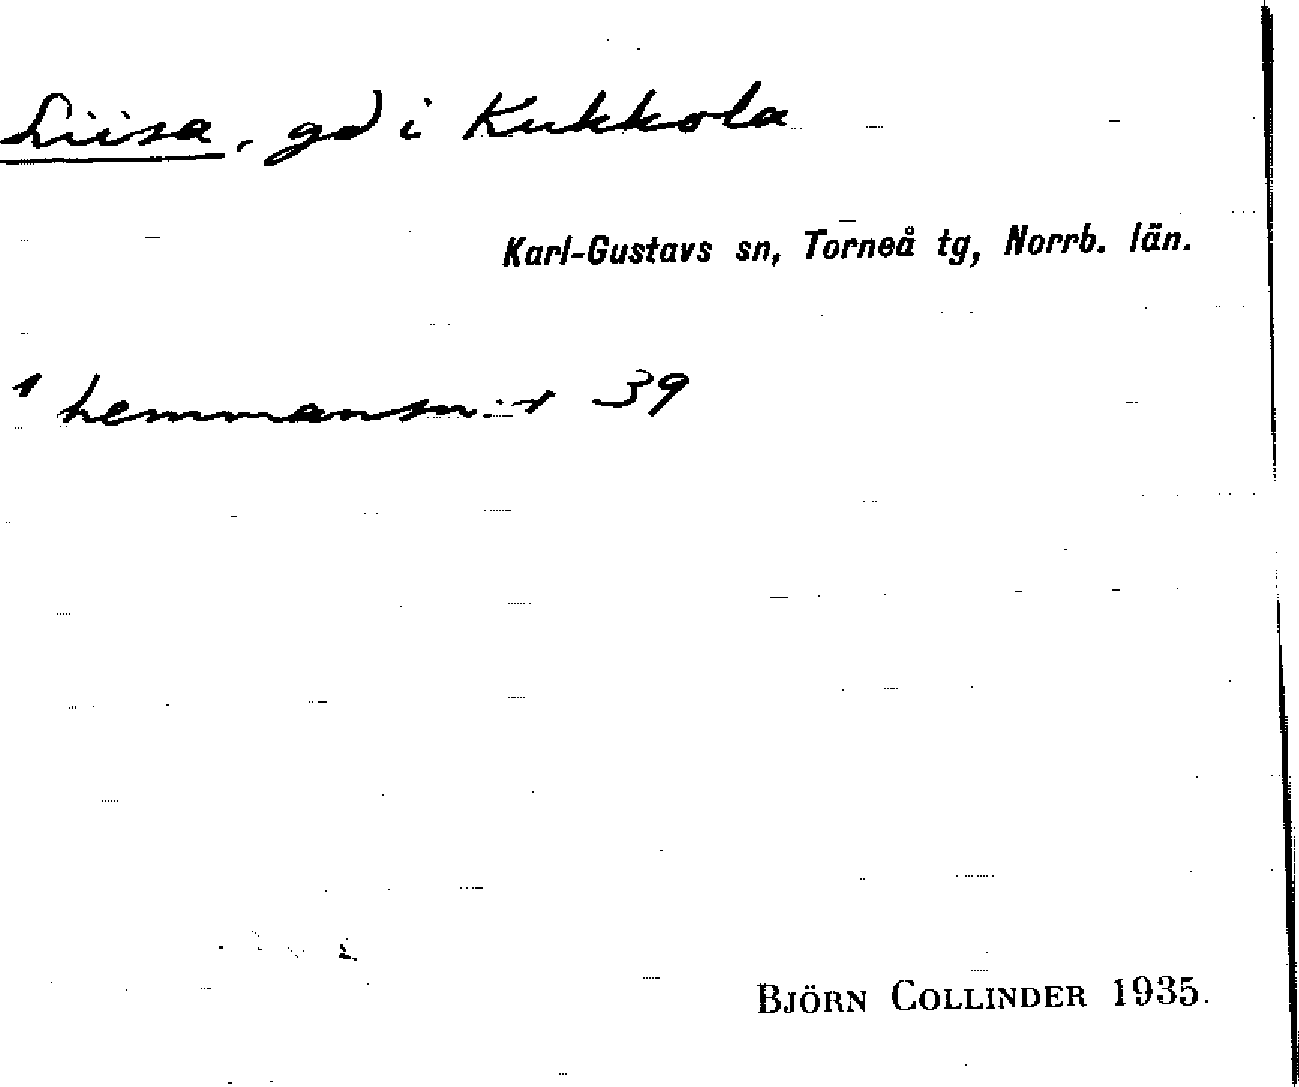 Liisa, gd i Kukkola
Karl-Gustavs sn, Torneå tg, Norrb. län.
1 hemmansn:r 39
BJÖRN COLLINDER 1935.